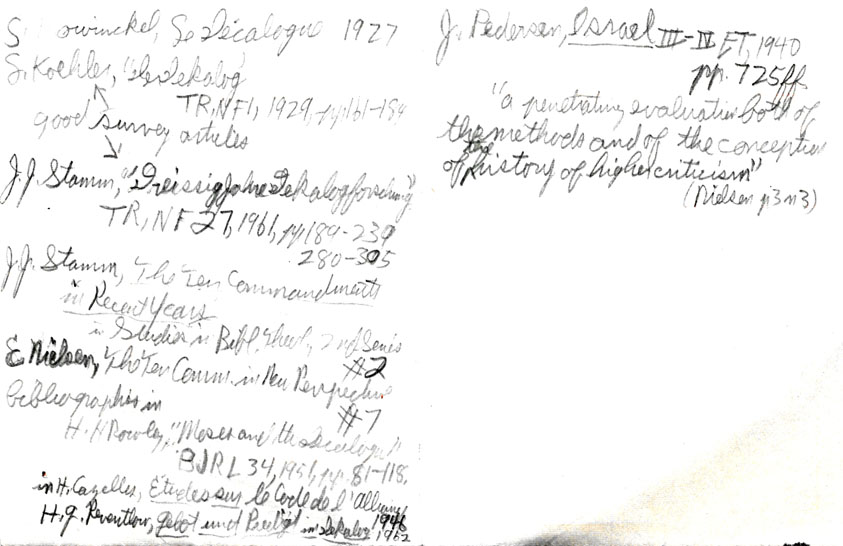 S. Mowinckel, Le Décalogue 1927
S. Koehler, "Der Dekalog
TR, NF1, 1929, pp. 161-184
good survey articles
J.J. Stamm, "Dreissig Jahre Dekalogforschung"
TR, NF 27, 1961, pp 189-239
280-305
J.J. Stamm, The Ten Commandments
in Recent Years
in Studies in Bibl. Theol., 2nd Series
#2
E Nielsen, The Ten Comm. in New Perspective
#7
bibliographies in
H. H Rowley, "Moses and the Decalogue"
BJRL 34, 1951, pp. 81-118,
in H. Cazelles, Etudes sur le Code de l'alliance
1946
H. g. Reventlow, Gebot und Predigt im Dekalog 1962
J. Pedersen, Israel III-IV ET, 1940
pp. 725ff
"a penetrating evaluation both of
the methods and of the conception
of the history of higher criticism"
(Nielsen p3 n3)